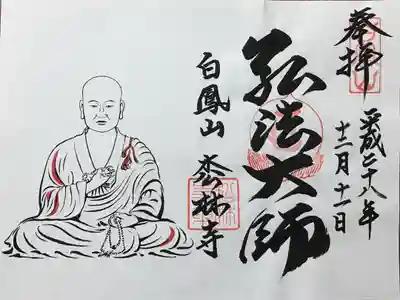 奉拝
平成二十八年
十二月十一日
弘法大師
白鳳山 秀林寺